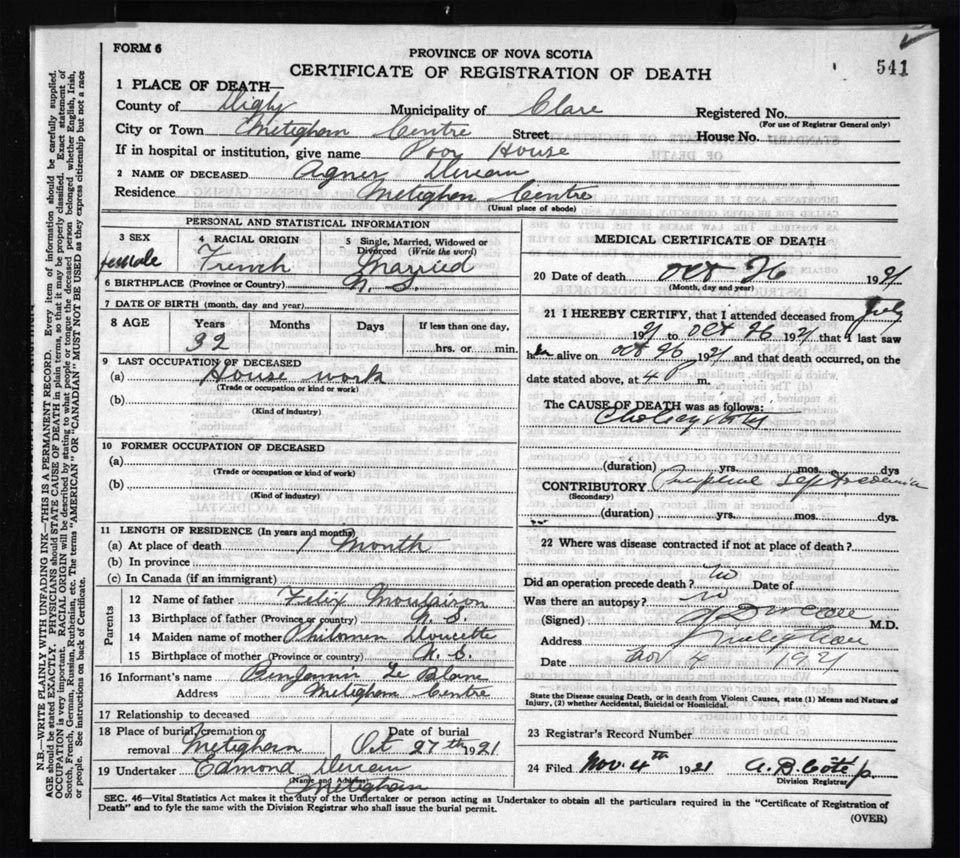 541
FORM 6
PROVINCE OF NOVA SCOTIA
CERTIFICATE OF REGISTRATION OF DEATH
1 PLACE OF DEATH—
County of Digby Municipality of Clare Registered No.
(For use of Registrar General only)
City or Town Meteghan Centre Street House No.
If in hospital or institution, give name Poor House
2 NAME OF DECEASED Agnes
Residence Meteghan Centre
(Usual place of abode)
PERSONAL AND STATISTICAL INFORMATION
3 SEX 4 RACIAL ORIGIN 5 Single, Married, Widowed or Divorced (Write the word)
female French Married
6 BIRTHPLACE (Province or Country) N. S.
7 DATE OF BIRTH (month, day and year)
8 AGE Years Months Days If less than one day,
32 hrs. or min.
9 LAST OCCUPATION OF DECEASED
(a) House work
(Trade or occupation or kind or work)
(b)
(Kind of industry)
10 FORMER OCCUPATION OF DECEASED
(a)
(Trade or occupation or kind of work)
(b)
(Kind of industry)
11 LENGTH OF RESIDENCE (In years and months)
(a) At place of death 1 Month
(b) In province
(c) In Canada (if an immigrant)
Parents
12 Name of father Felix
13 Birthplace of father (Province or country) N. S.
14 Maiden name of mother Philomen Doucette
15 Birthplace of mother (Province or country) N. S.
16 Informant's name Benjamin Le Blanc
Address Meteghan Centre
17 Relationship to deceased
18 Place of burial, cremation or removal Meteghan Date of burial Oct 27th 1921
19 Undertaker Edmond
(Name and Address)
Meteghan
MEDICAL CERTIFICATE OF DEATH
20 Date of death Oct 26 1921
(Month, day and year)
21 I HEREBY CERTIFY, that I attended deceased from July
1921 to Oct 26 1921 that I last saw
her alive on Oct 26 1921 and that death occurred, on the
date stated above, at 4 P m.
The CAUSE OF DEATH was as follows:
(duration) yrs. mos. dys
CONTRIBUTORY
(Secondary)
(duration) yrs. mos. dys.
22 Where was disease contracted if not at place of death?
Did an operation precede death? no Date of
Was there an autopsy? no
(Signed) M.D.
Address
Date Nov 4 1921
State the Disease causing Death, or in death from Violent Causes, state (1) Means and Nature of
Injury, (2) whether Accidental, Suicidal or Homicidal.
23 Registrar's Record Number
24 Filed Nov. 4th 1921
Division Registrar
SEC. 46—Vital Statistics Act makes it the duty of the Undertaker or person acting as Undertaker to obtain all the particulars required in the "Certificate of Registration of
Death" and to fyle the same with the Division Registrar who shall issue the burial permit.
(OVER)
N.B.—WRITE PLAINLY WITH UNFADING INK—THIS IS A PERMANENT RECORD. Every item of information should be carefully supplied.
AGE should be stated EXACTLY. PHYSICIANS should STATE CAUSE OF DEATH in plain terms, so that it may be properly classified. Exact statement of
OCCUPATION is very important. RACIAL ORIGIN will be described by stating to what people or tongue the deceased person belonged whether English, Irish,
Scotch, French, German, Russian, Ruthenian, etc. The terms "AMERICAN" OR "CANADIAN" MUST NOT BE USED as they express citizenship but not a race
or people. See instructions on back of Certificate.